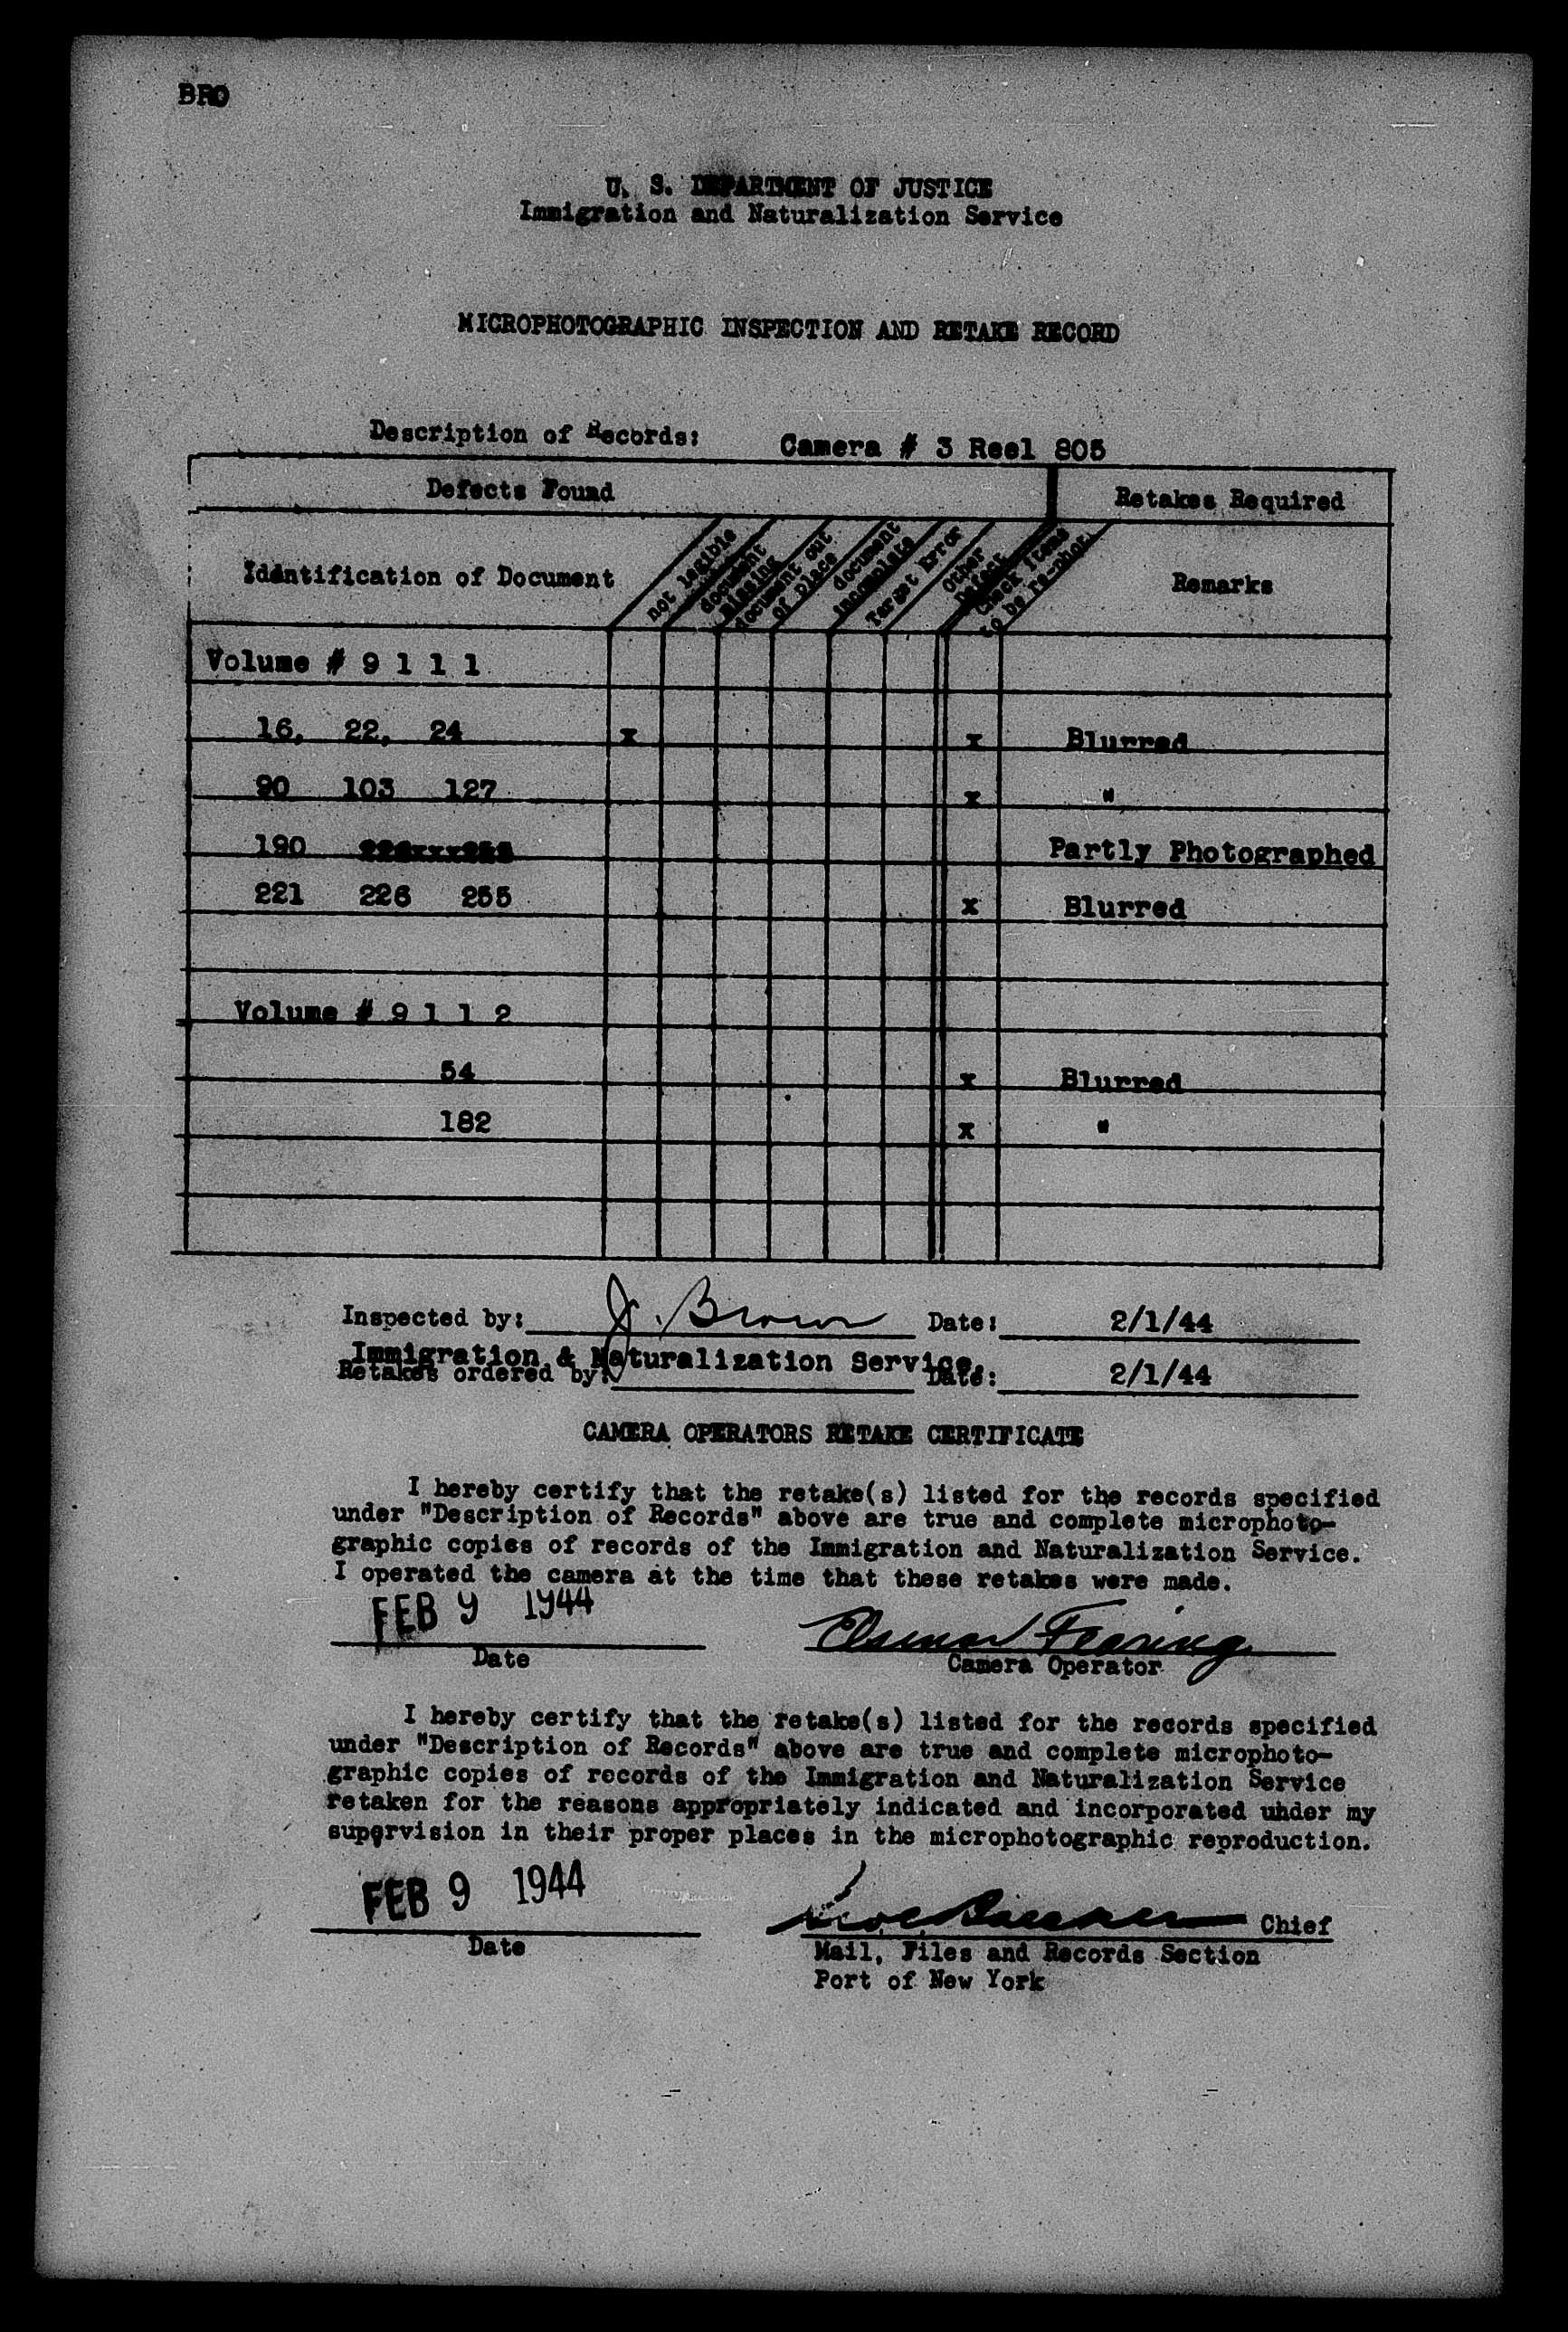 BRO
U. S. DEPARTMENT OF JUSTICE
Immigration and Naturalization Service
MICROPHOTOGRAPHIC INSPECTION AND RETAKE RECORD
Description of Records: Camera # 3 Reel 805
Defects Found Retakes Required
Identification of Document not legible document missing document out of place document incomplete Target Error Other Defect Check items to be re-phot. Remarks
Volume # 9 1 1 1
16, 22, 24 x x Blurred
90 103 127 x "
190 Partly Photographed
221 226 255 x Blurred
Volume # 9 1 1 2
54 x Blurred
182 x "
Inspected by: J. Brown Date: 2/1/44
Immigration & Naturalization Service.
Retakes ordered by: Date: 2/1/44
CAMERA OPERATORS RETAKE CERTIFICATE
I hereby certify that the retake(s) listed for the records specified
under "Description of Records" above are true and complete microphoto-
graphic copies of records of the Immigration and Naturalization Service.
I operated the camera at the time that these retakes were made.
FEB 9 1944
Date Camera Operator
I hereby certify that the retake(s) listed for the records specified
under "Description of Records" above are true and complete microphoto-
graphic copies of records of the Immigration and Naturalization Service
retaken for the reasons appropriately indicated and incorporated under my
supervision in their proper places in the microphotographic reproduction.
FEB 9 1944
Chief
Date Mail, Files and Records Section
Port of New York